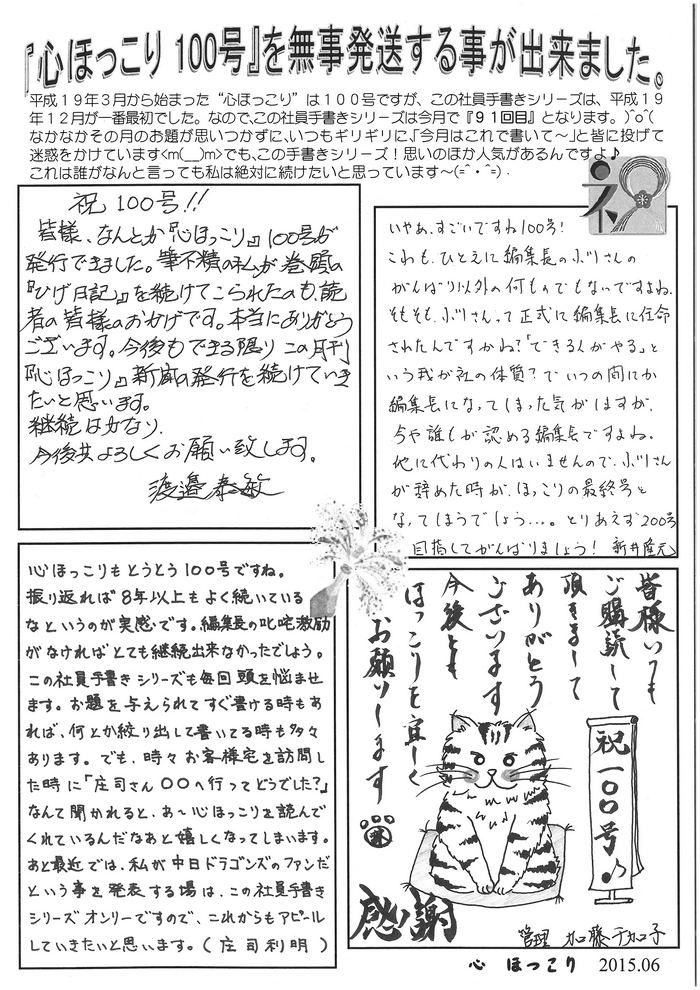 『心ほっこり 100号』を無事発送する事が出来ました。
平成１９年３月から始まった“心ほっこり”は１００号ですが、この社員手書きシリーズは、平成１９
年１２月が一番最初でした。なので、この社員手書きシリーズは今月で『９１回目』となります。)^o^(
なかなかその月のお題が思いつかずに、いつもギリギリに、「今月はこれで書いて～」と皆に投げて
迷惑をかけています<m(__)m>でも、この手書きシリーズ！思いのほか人気があるんですよ♪
これは誰がなんと言っても私は絶対に続けたいと思っています～(=^・^=)．
祝
祝 100号!!
皆様、なんとか『心ほっこり』100号が
発行できました。筆不精の私が巻頭の
『ひげ日記』を続けてこられたのも、読
者の皆様のおかげです。本当にありがとう
ございます。今後もできる限りこの月刊
『心ほっこり』新聞の発行を続けていき
たいと思います。
継続は力なり、
今後共よろしくお願い致します。
渡邉泰敏
いやぁ、すごいですね100号!
これも、ひとえに編集長の小川さんの
がんばり以外の何ものでもないですよね。
そもそも、小川さんって正式に編集長に任命
されたんですかね?「できる人がやる」と
いう我が社の体質?でいつの間にか
編集長になってしまった気がしますが、
今や誰もが認める編集長ですよね。
他に代わりの人はいませんので、小川さん
が辞めた時が、ほっこりの最終号と
なってしまうでしょう…。とりあえず200号
目指してがんばりましょう! 新井隆元
心ほっこりもとうとう100号ですね。
振り返れば8年以上もよく続いている
なというのが実感です。編集長の叱咤激励
がなければとても継続出来なかったでしょう。
この社員手書きシリーズも毎回頭を悩ませ
ます。お題を与えられてすぐ書ける時もあ
れば、何とか絞り出して書いてる時も多々
あります。でも、時々お客様宅を訪問し
た時に「庄司さん〇〇へ行ってどうでした?」
なんて聞かれると、あ～心ほっこりを読んで
くれているんだなあと嬉しくなってしまいます。
あと最近では、私が中日ドラゴンズのファンだ
という事を発表する場は、この社員手書き
シリーズオンリーですので、これからもアピール
していきたいと思います。(庄司利明)
皆様いつも
ご購読して
頂きまして
ありがとう
ございます
今後とも
ほっこりを宜しく
お願いします
祝一〇〇号♪
感謝
管理 加藤千加子
心 ほっこり 2015.06